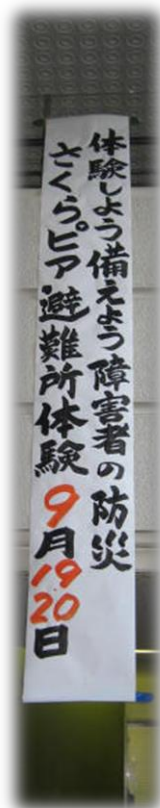 体験しよう備えよう障害者の防災
さくらピア避難所体験9月19 20日